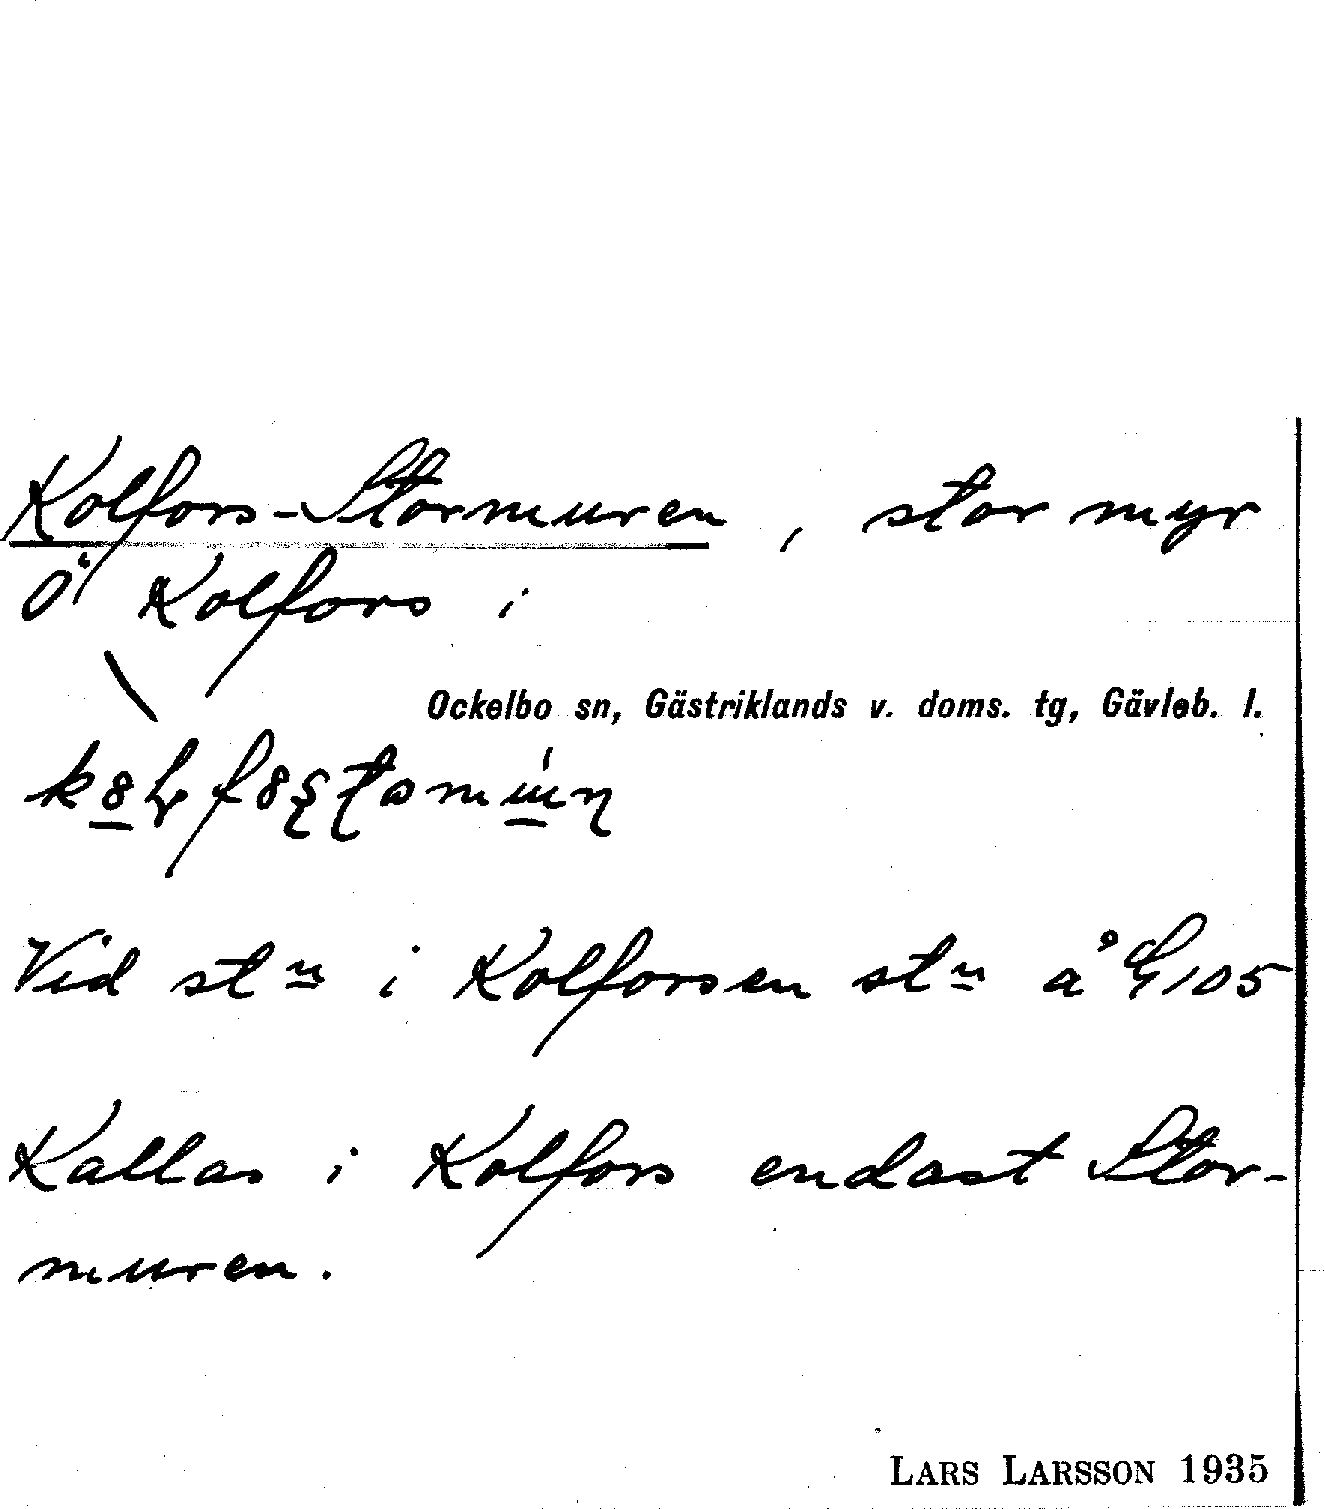 Kolfors-Stormuren, stor myr
Ö Kolfors i
Ockelbo sn, Gästriklands v. doms. tg, Gävleb. l.
Vid stn i Kolforsen stn å G 105
Kallas i Kolfors endast Stor-
muren.
LARS LARSSON 1935